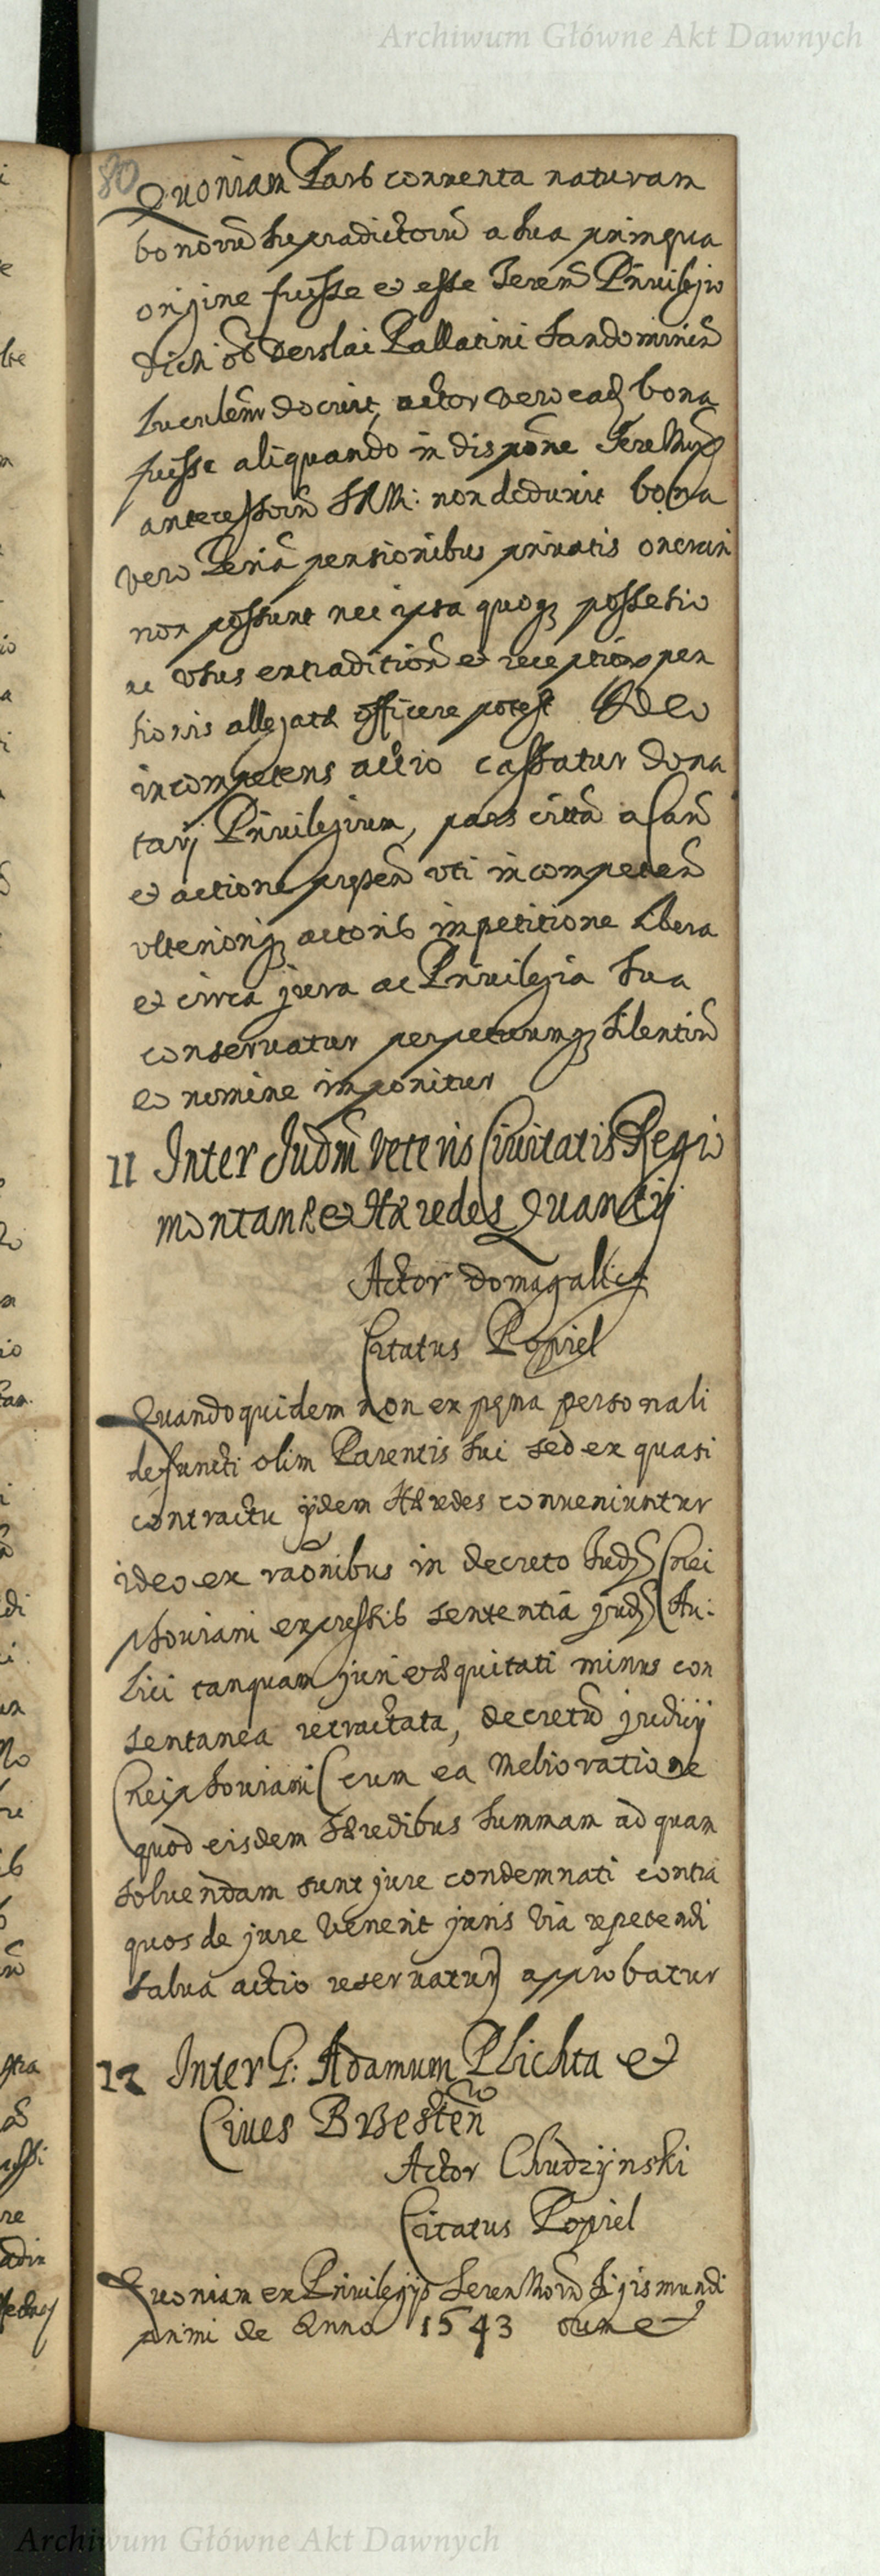 Archiwum Główne Akt Dawnych
80
Quoniam Pars conventa naturam
bonorū supradictorū a sua primaeua
origine fuisse et esse Terenā Priuilegio
Dersslai Pallatini Sandomirien̄
docuit, actor vero eadē bona
fuisse aliquando in dispōne
antecessorū SRM: non deduxit bona
vero Terenā pensionibus priuatis onerari
non possunt nec ipsa quoqȝ possessio
ac vsus extraditionis et receptionis pen
sionis allegatæ officere potest Ideo
incompetens actio cassatur dona
tarij Priuilegium, pars citata a
et actione presen̄ vti incompeten̄
vlterioriqȝ actoris impetitione libera
et circa jura ac Priuilegia sua
conseruatur perpetuumqȝ silentiū
eo nomine imponitur
11 Inter Judm̄ veteris Ciuitatis Regio
montanæ et Hæredes Quandij
Actor Domagallicz
Citatus Popiel
Quandoquidem non ex pęna personali
defuncti olim Parentis sui sed ex quasi
contractu ijdem Hæredes conueniuntur
ideo ex raōnibus in decreto Judȝ Cnei
phouiani expressis sententiā judȝ Au:
lici tanquam juri et æquitati minus con
sentanea retractata, decretū judicij
Cneiphouiani (cum ea melioratione
quod eisdem Hæredibus summam ad quam
soluendam sunt jure condemnati contra
quos de jure venerit juris via repetendi
salua actio reseruatur) approbatur
12 Inter G: Adamum Plichta et
Ciues Brzesten̄
Actor Chudzijnski
Citatus Popiel
Quoniam ex Priuilegijs Seren Norū Sigismundi
primi de Anno 1543 cum
Archiwum Główne Akt Dawnych